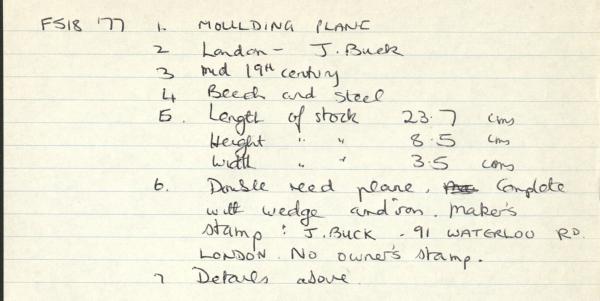 FS18 '77 1. MOULDING PLANE
2 London - J. Buck
3 mid 19th century
4 Beech and steel
5. Length of stock 23.7 cms
Height " " 8.5 cms
Width " " 3.5 cms
6. Double reed plane. Complete
with wedge and iron. Maker's
stamp: J. BUCK. 91 WATERLOO RD.
LONDON. No owner's stamp.
7 Details above.